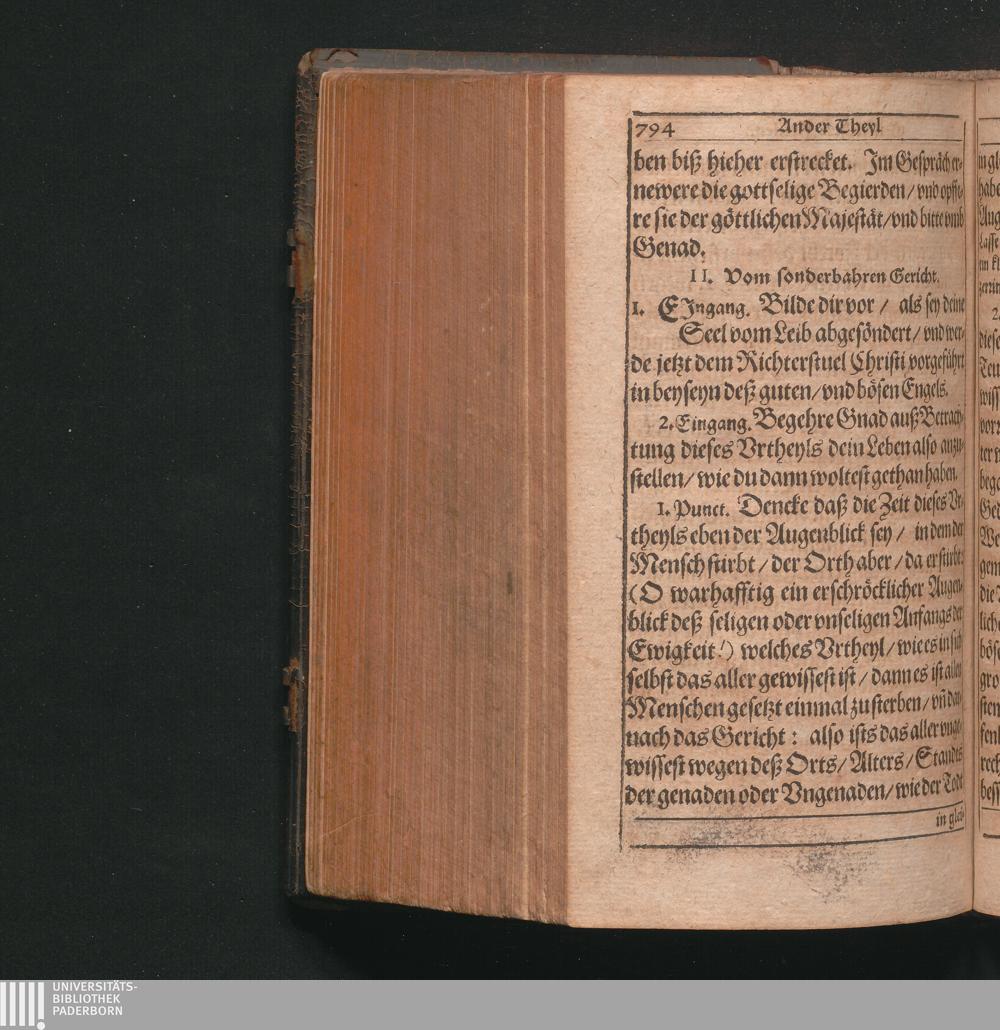 794 Ander Theyl
ben biß hieher erstrecket. Im Gespräch er-
newere die gottselige Begierden / vnd opffe-
re sie der göttlichen Majestät / vnd bitte vmb
Genad.
II. Vom sonderbahren Gericht.
1. EIngang. Bilde dir vor / als sey deine
Seel vom Leib abgesöndert / vnd wer-
de jetzt dem Richterstuel Christi vorgeführt
in beyseyn deß guten / vnd bösen Engels.
2. Eingang. Begehre Gnad auß Betrach-
tung dieses Vrtheyls dein Leben also anzu-
stellen / wie du dann woltest gethan haben.
1. Punct. Dencke daß die Zeit dieses Vr-
theyls eben der Augenblick sey / in dem der
Mensch stirbt / der Orth aber / da er stirbt:
(O warhafftig ein erschröcklicher Augen-
blick deß seligen oder vnseligen Anfangs der
Ewigkeit!) welches Vrtheyl / wie es in sich
selbst das aller gewissest ist / dann es ist allen
Menschen gesetzt einmal zu sterben / vñ dar-
nach das Gericht: also ists das aller vnge-
wissest wegen deß Orts / Alters / Standts
der genaden oder Vngenaden / wie der Todt
in glei-
UNIVERSITÄTS-
BIBLIOTHEK
PADERBORN